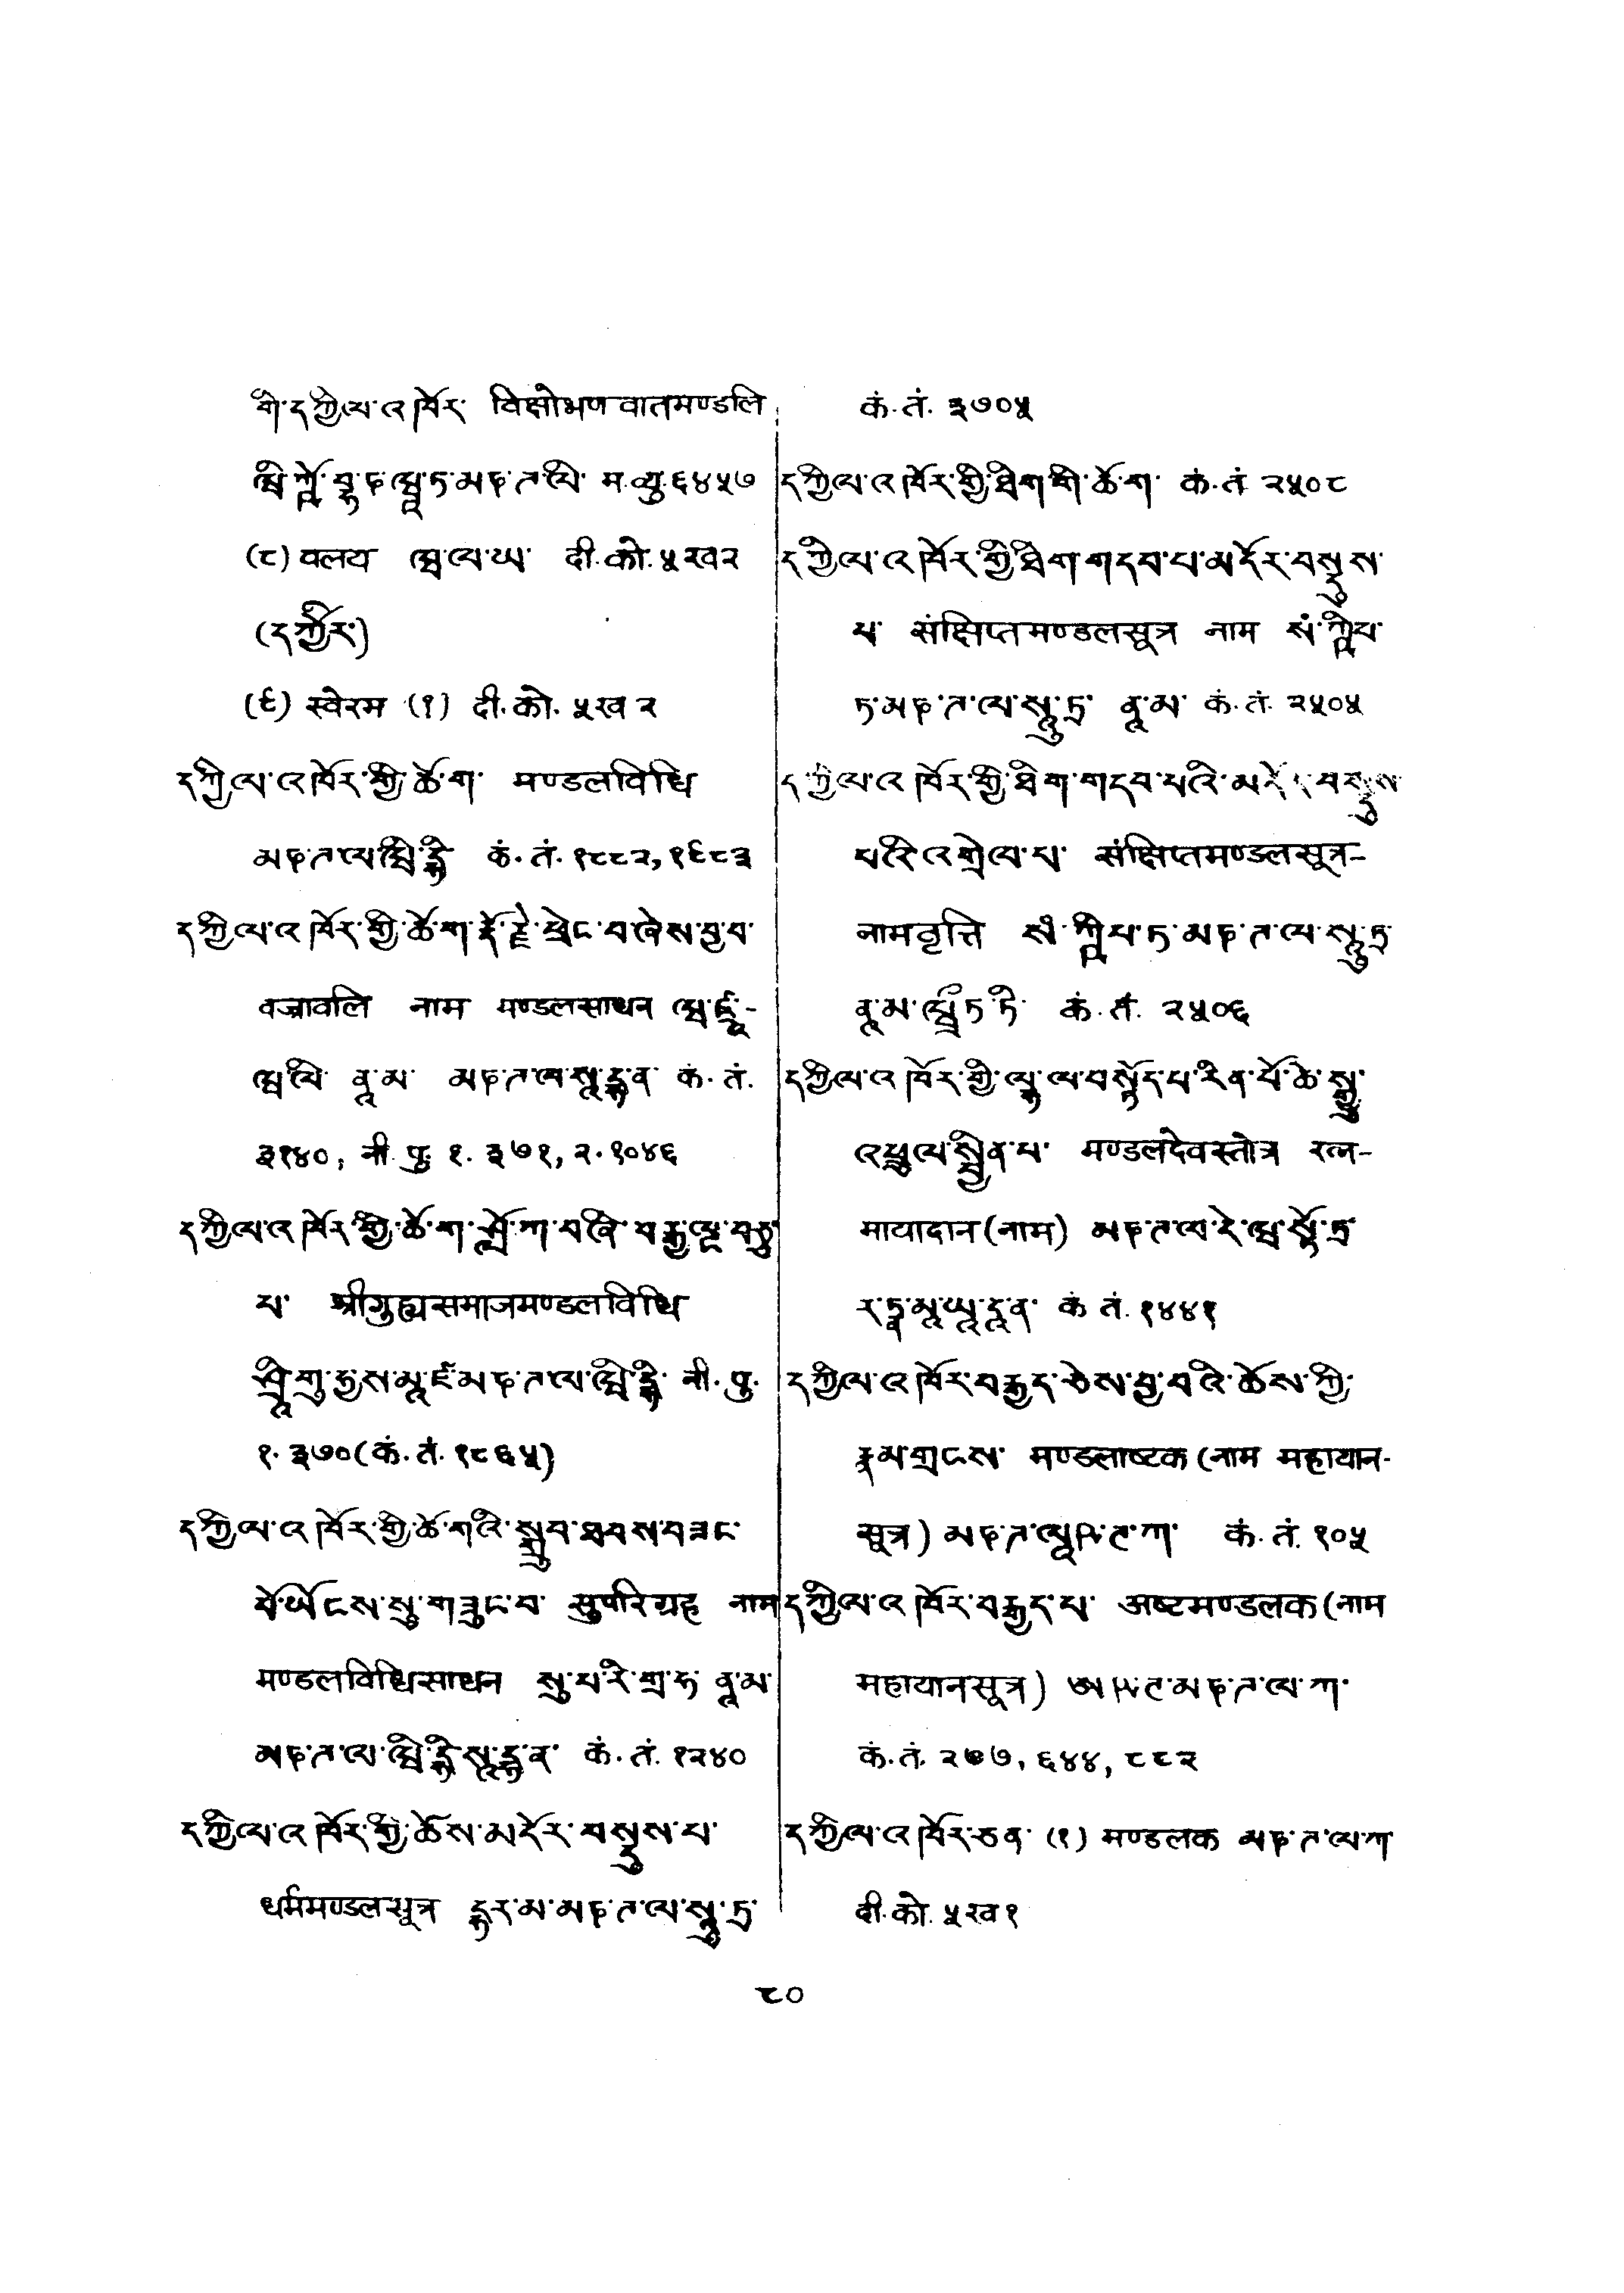 གི་དཀྱིལ་འཁོར་ विक्षोभण वातमण्डलि
ཝི་ཀྵོ་བྷ་ཎ་ཝཱ་ཏ་མཎ་ཌ་ལི་ म.व्यु.६४५७
(८) वलय ཝ་ལ་ཡ་ दी.को.५ख२
(དཀྱོར་)
(९) स्वेरम (१) दी.को.५ख २
དཀྱིལ་འཁོར་གྱི་ཆོ་ག་ मण्डलविधि
མཎ་ཌ་ལ་ཝི་དྷི་ कं. तं. १८८२, १९८३
དཀྱིལ་འཁོར་གྱི་ཆོ་ག་རྡོ་རྗེ་ཕྲེང་བ་ཞེས་བྱ་བ་
वज्रावलि नाम मण्डलसाधन ཝ་ཛྲཱ-
ཝ་ལི་ ནཱ་མ་ མཎ་ཌ་ལ་སཱ་དྷ་ན་ कं. तं.
३१४०, नी. पु १. ३७१, २.१०४६
དཀྱིལ་འཁོར་གྱི་ཆོ་ག་ཤློ་ཀ་བཞི་བརྒྱ་ལྔ་བཅུ་
པ་ श्रीगुह्यसमाजमण्डलविधि
ཤྲཱི་གུ་ཧྱ་ས་མཱ་ཛ་མཎ་ཌ་ལ་ཝི་དྷི་ नी. पु.
१. ३७०(कं. तं. १८६५)
དཀྱིལ་འཁོར་གྱི་ཆོ་གའི་སྒྲུབ་ཐབས་བཟང་
པོ་ཡོངས་སུ་གཟུང་བ་ सुपरिग्रह नाम
मण्डलविधिसाधन སུ་པ་རི་གྲ་ཧ་ ནཱ་མ་
མཎ་ཌ་ལ་ཝི་དྷི་སཱ་དྷ་ན་ कं. तं. १२४०
དཀྱིལ་འཁོར་གྱི་ཆོས་མདོར་བསྡུས་པ་
धर्ममण्डलसूत्र དྷར་མ་མཎ་ཌ་ལ་སཱུ་ཏྲ་
कं. तं. ३७०५
དཀྱིལ་འཁོར་གྱི་ཐིག་གི་ཆོ་ག་ कं.तं २५०८
དཀྱིལ་འཁོར་གྱི་ཐིག་གདབ་པ་མདོར་བསྡུས་
པ་ संक्षिप्तमण्डलसूत्र नाम སཾ་ཀྵིཔ་
ཏ་མཎ་ཌ་ལ་སཱུ་ཏྲ་ ནཱ་མ་ कं.तं. २५०५
དཀྱིལ་འཁོར་གྱི་ཐིག་གདབ་པའི་མདོར་བསྡུས་
པའི་འགྲེལ་པ་ संक्षिप्तमण्डलसूत्र-
नामवृत्ति སཾ་ཀྵིཔ་ཏ་མཎ་ཌ་ལ་སཱུ་ཏྲ་
ནཱ་མ་ཝྲྀཏ་ཏི་ कं. तं. २५०६
དཀྱིལ་འཁོར་གྱི་ལྷ་ལ་བསྟོད་པ་རིན་པོ་ཆེ་སྒྱུ་
འཕྲུལ་སྦྱིན་པ་ मण्डलदेवस्तोत्र रत्न-
मायादान(नाम) མཎ་ཌ་ལ་དེ་ཝ་སྟོ་ཏྲ་
ར་ཏྣ་མཱ་ཡཱ་དཱ་ན་ कं तं. १४४१
དཀྱིལ་འཁོར་བརྒྱད་ཅེས་བྱ་བའི་ཆོས་ཀྱི་
རྣམ་གྲངས་ मण्डलाष्टक (नाम महायान-
सूत्र) མཎ་ཌ་ལཱཥ་ཊ་ཀ་ कं. तं. १०५
དཀྱིལ་འཁོར་བརྒྱད་པ་ अष्टमण्डलक (नाम
महायानसूत्र) ཨཥ་ཊ་མཎ་ཌ་ལ་ཀ་
कं.तं. २७७, ६४४, ८८२
དཀྱིལ་འཁོར་ཅན་ (१) मण्डलक མཎ་ཌ་ལ་ཀ
दी.को. ५ख१
८०